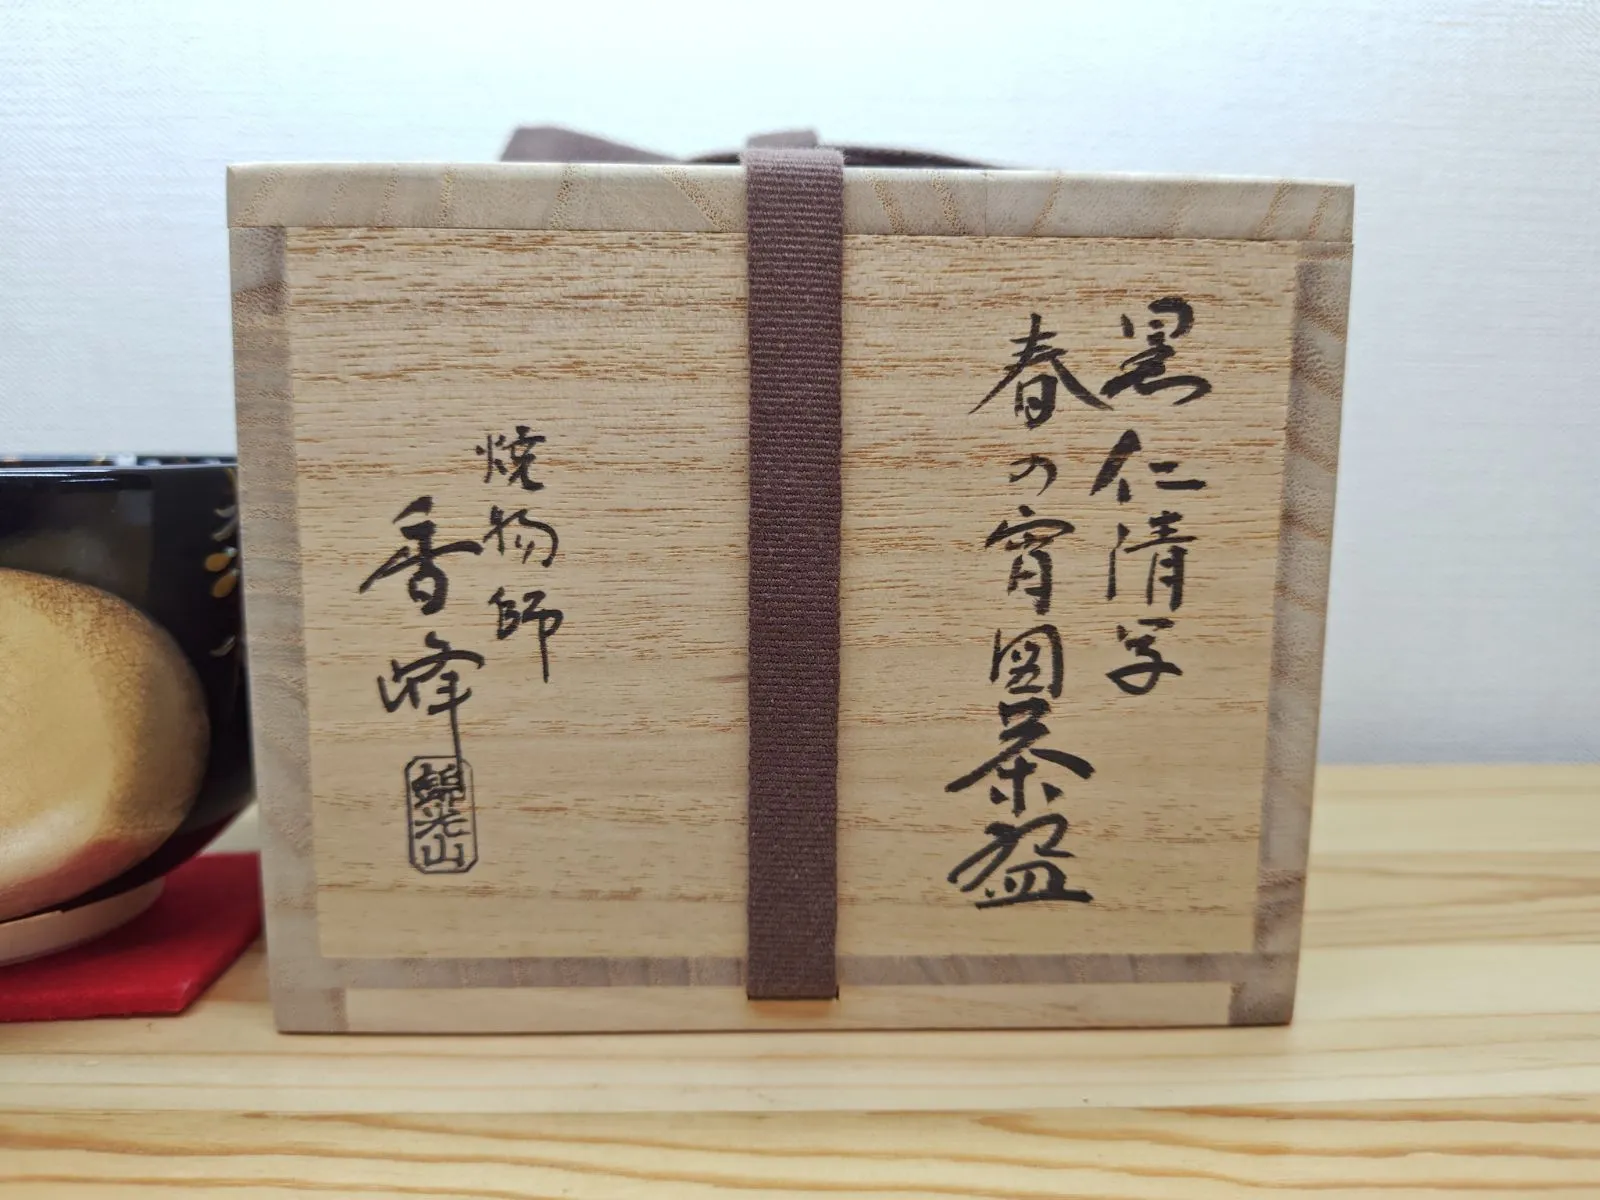 黒仁清写
春の宵図茶盌
焼物師
香峰
錦光山